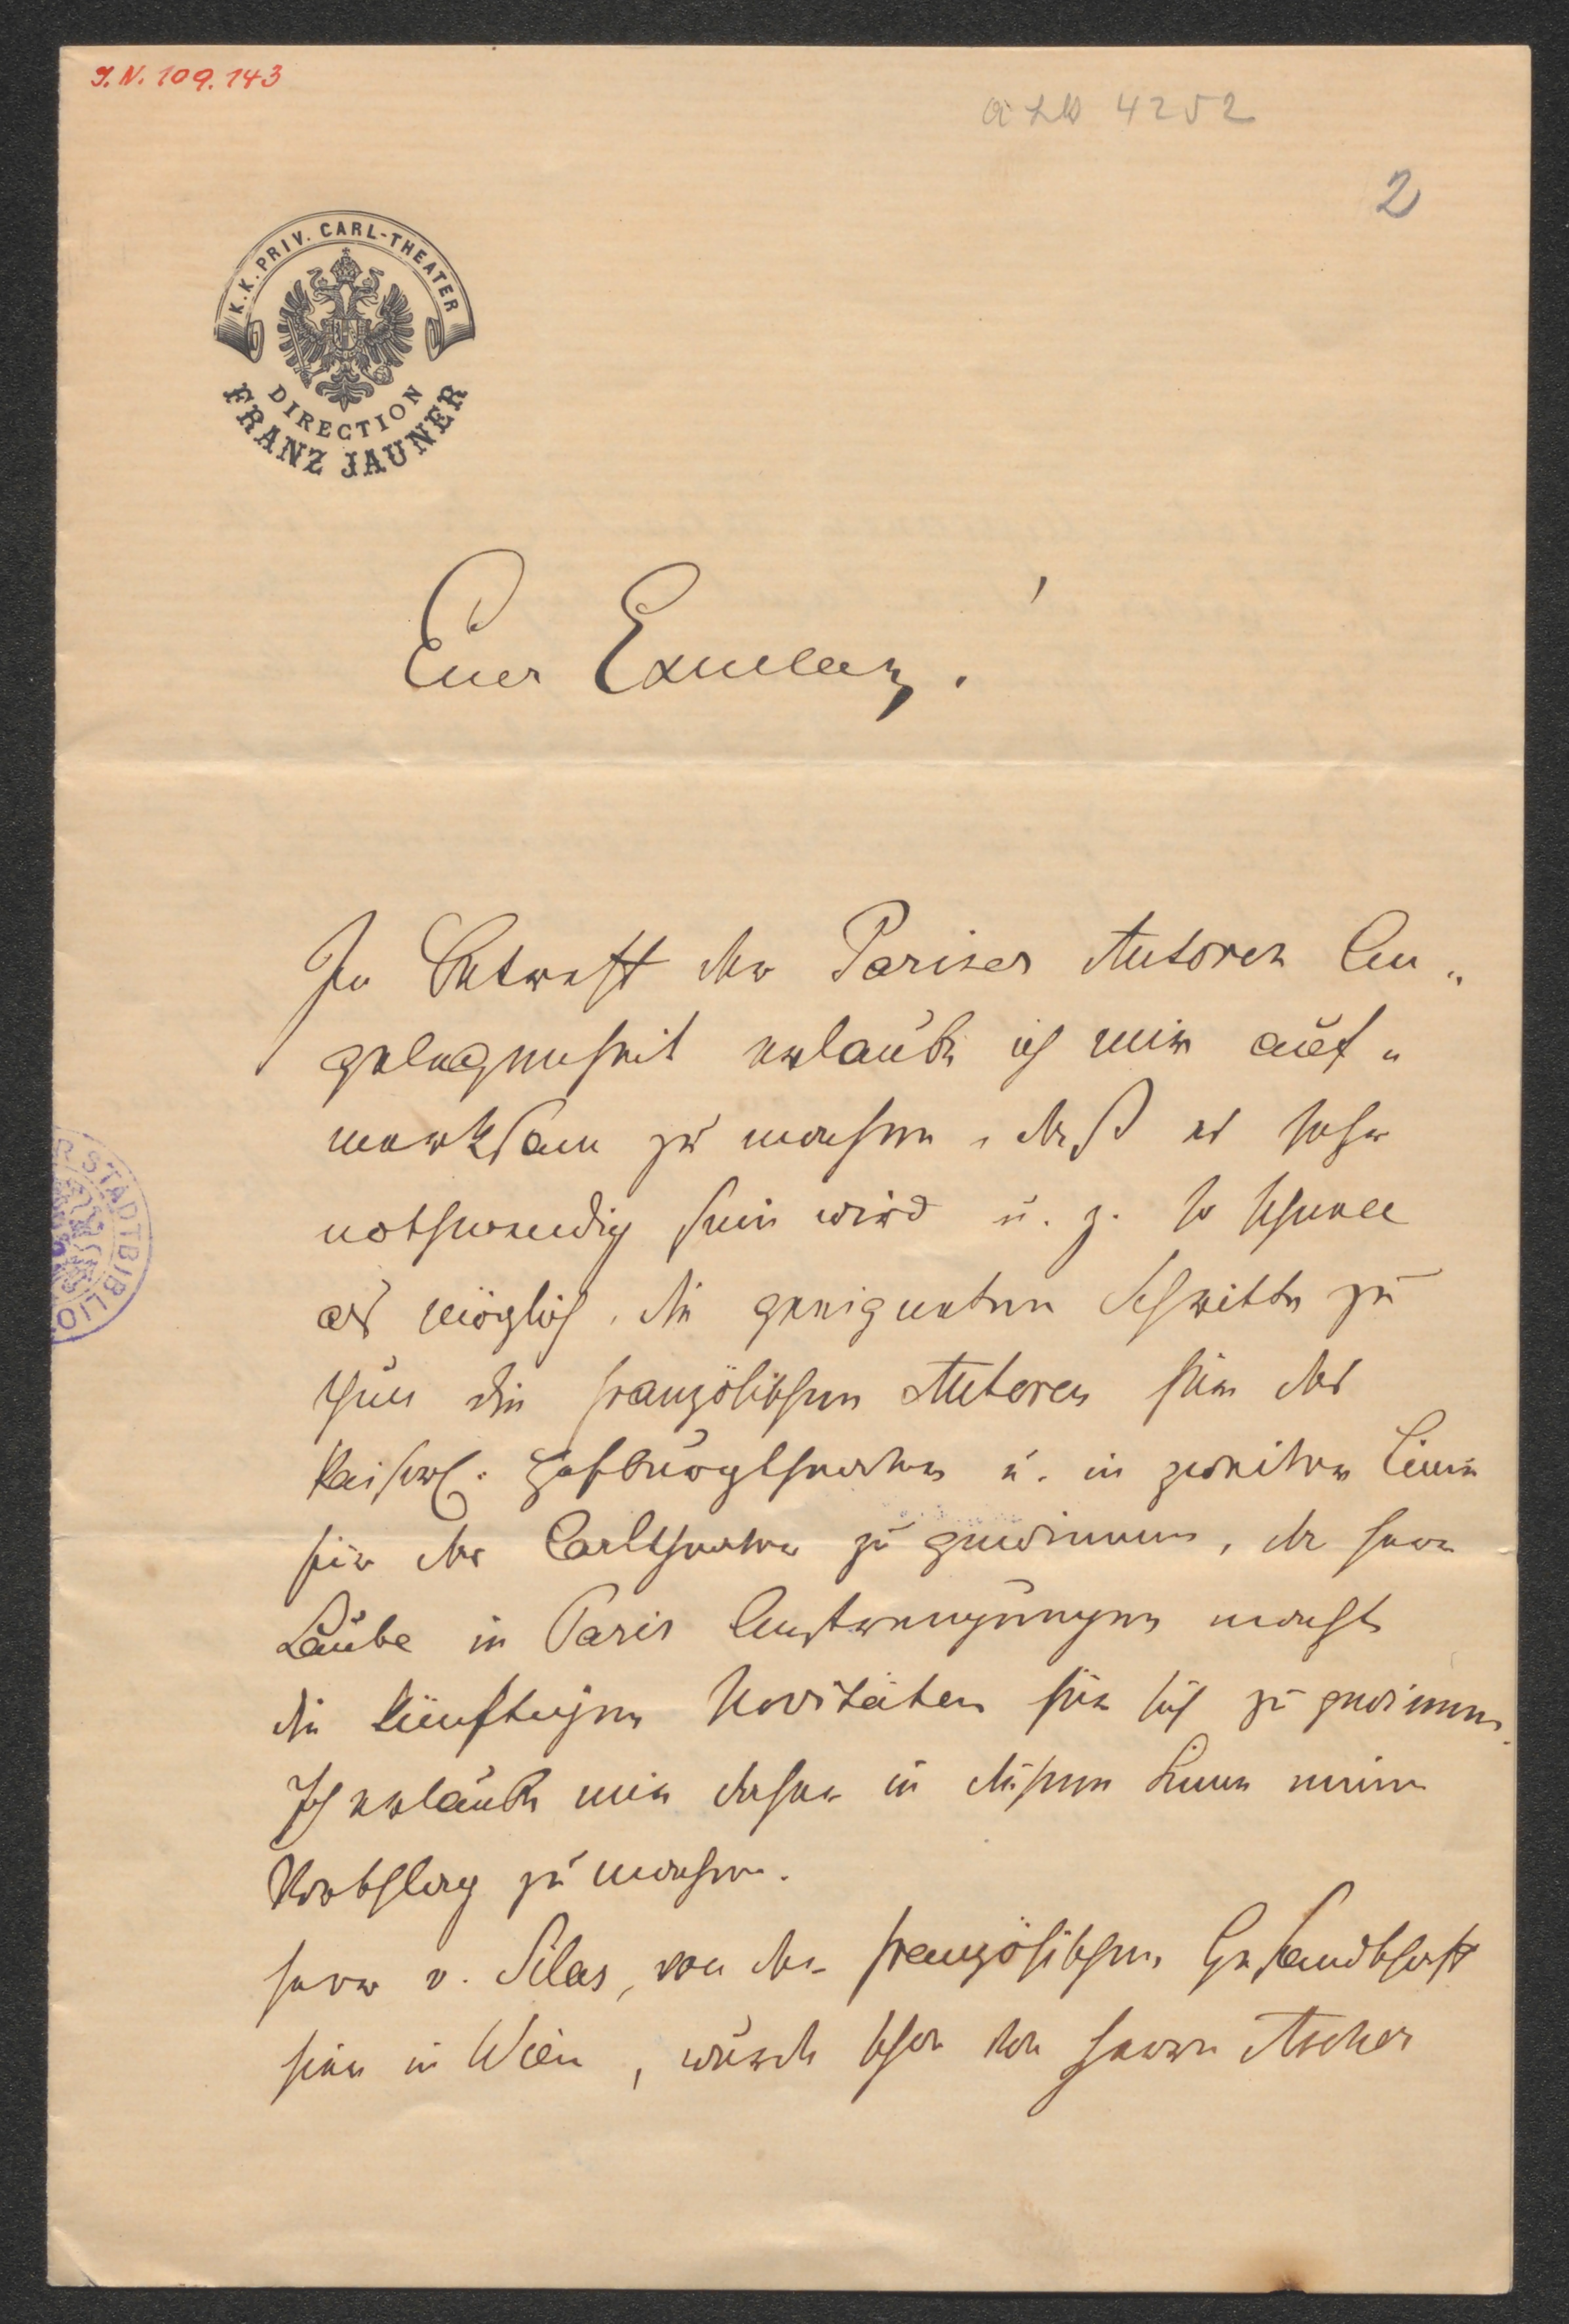 I.N. 109.143
4252
2
K.K. PRIV. CARL-THEATER
DIRECTION
FRANZ JAUNER
Euer Excellenz!
In Betreff der Pariser Autoren An-
gelegenheit erlaube ich mir auf-
merksam zu machen, daß es sehr
nothwendig sein wird u. z. so schnell
als möglich, die geeigneten Schritte zu
thun die französischen Autoren für das
kaiserl. Hofburgtheater u. in zweiter Linie
für das Carltheater zu gewinnen, da Herr
Laube in Paris Anstrengungen macht
die künftigen Novitäten für sich zu gewinnen.
Ich erlaube mir daher in diesem Sinne meinen
Vorschlag zu machen.
Herr v. Silas, von der französischen Gesandtschaft
hier in Wien, wurde schon von Herrn Ascher
STADTBIBLIO